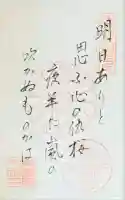 明日ありと
思ふ心の仇桜
夜半に嵐の
吹かぬものかは